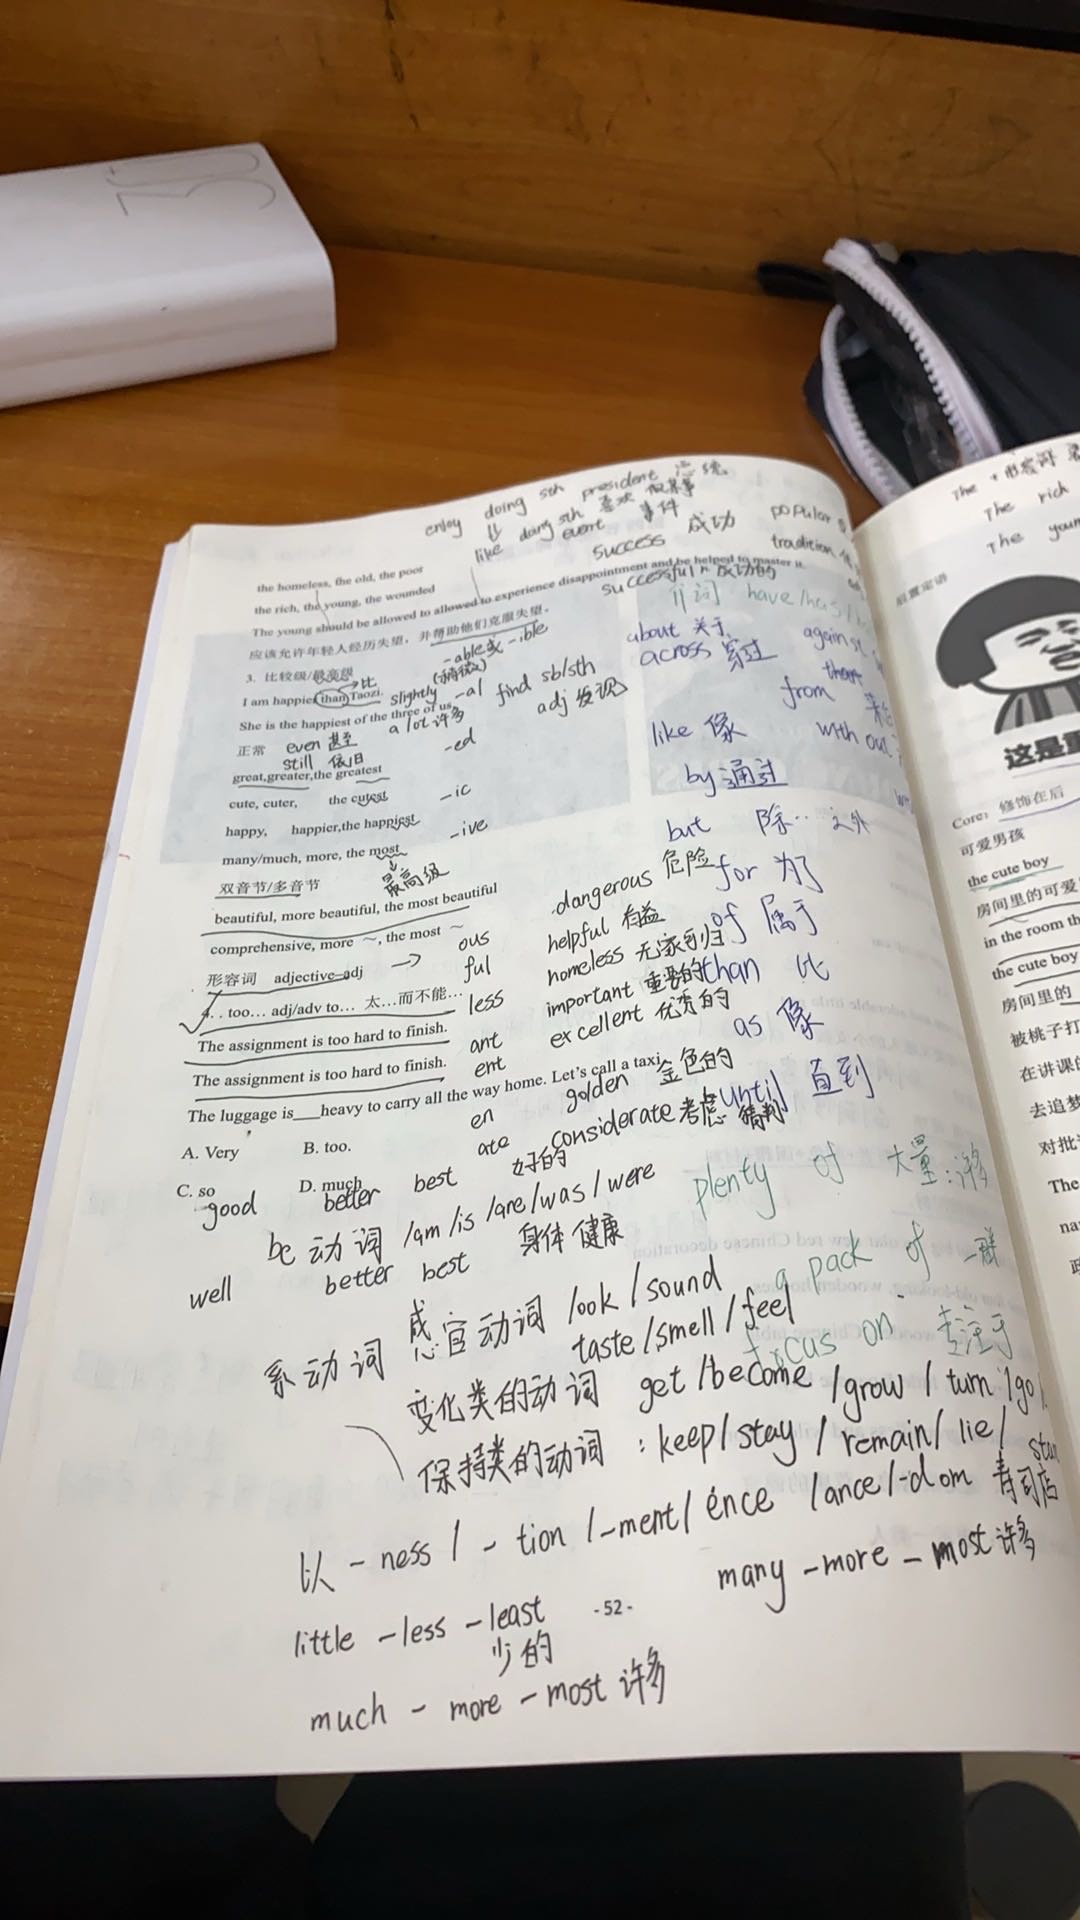 enjoy doing sth president 总统
like doing sth 喜欢做某事
event 事件
success 成功 popular
tradition
successful 成功的
the homeless, the old, the poor
the rich, the young, the wounded
The young should be allowed to allowed to experience disappointment and be helped to master it.
应该允许年轻人经历失望，并帮助他们克服失望。
3. 比较级/最高级
-able或 -ible
I am happier than Taozi.
比
slightly (稍微) -al find sb/sth
adj 发现
She is the happiest of the three of us.
a lot 许多
正常 even 甚至
still 依旧
-ed
great,greater,the greatest
cute, cuter, the cutest
-ic
happy, happier,the happiest
-ive
many/much, more, the most
最高级
双音节/多音节
beautiful, more beautiful, the most beautiful
comprehensive, more ～, the most ～
形容词 adjective-adj →
4. . too… adj/adv to… 太…而不能…
The assignment is too hard to finish.
The assignment is too hard to finish.
The luggage is___heavy to carry all the way home. Let's call a taxi.
A. Very B. too.
C. so D. much
ous dangerous 危险
ful helpful 有益
less homeless 无家可归
ant important 重要的
ent excellent 优秀的
en golden 金色的
ate considerate 考虑
介词 have/has/
about 关于 against
across 穿过
from
like 像 without
by 通过
but 除…之外
for 为了
of 属于
than 比
as 像
until 直到
good better best 好的
be 动词 /am /is /are/was/were
well better best 身体健康
plenty of 大量:许多
a pack of 一群
focus on 专注于
系动词 感官动词 look/sound
taste/smell/feel
变化类的动词 get/become/grow/turn/go/
保持类的动词：keep/stay/remain/lie/
以 -ness / -tion /-ment/ ence /ance/-dom 寿司店
little -less -least
少的
many -more - most 许多
-52-
much - more - most 许多
The + 形容词
The rich
The
后置定语
这是
Core: 修饰在后
可爱男孩
the cute boy
房间里的可爱
in the room
the cute boy
房间里的
被桃子打
在讲课的
去追梦
对批
The
na